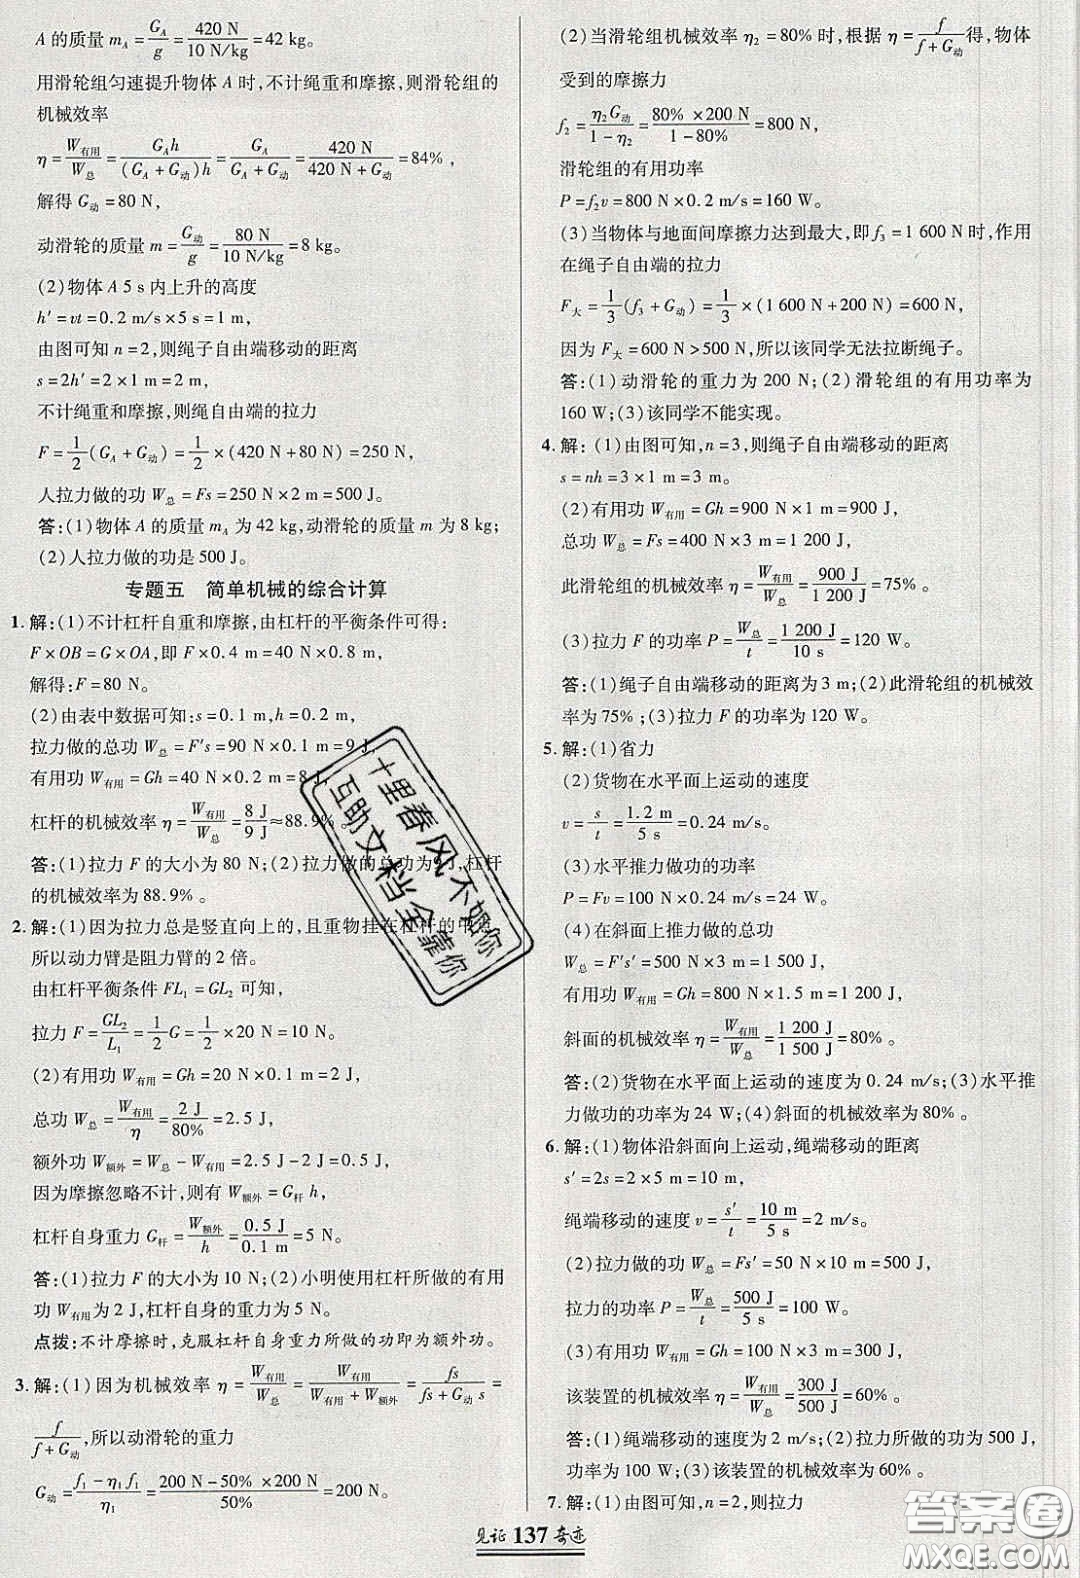 A 的质量 m_A = G_A/g = 420 N/10 N/kg = 42 kg。
用滑轮组匀速提升物体 A 时,不计绳重和摩擦,则滑轮组的
机械效率
η = W有用/W总 = G_A h/(G_A + G动)h = G_A/(G_A + G动) = 420 N/(420 N + G动) = 84%,
解得 G动 = 80 N,
动滑轮的质量 m = G动/g = 80 N/10 N/kg = 8 kg。
(2)物体 A 5 s 内上升的高度
h′ = vt = 0.2 m/s × 5 s = 1 m,
由图可知 n = 2,则绳子自由端移动的距离
s = 2h′ = 2 × 1 m = 2 m,
不计绳重和摩擦,则绳自由端的拉力
F = 1/2(G_A + G动) = 1/2 × (420 N + 80 N) = 250 N,
人拉力做的功 W总 = Fs = 250 N × 2 m = 500 J。
答:(1)物体 A 的质量 m_A 为 42 kg,动滑轮的质量 m 为 8 kg;
(2)人拉力做的功是 500 J。
专题五 简单机械的综合计算
1. 解:(1)不计杠杆自重和摩擦,由杠杆的平衡条件可得:
F × OB = G × OA,即 F × 0.4 m = 40 N × 0.8 m,
解得:F = 80 N。
(2)由表中数据可知:s = 0.1 m,h = 0.2 m,
拉力做的总功 W总 = F′s = 90 N × 0.1 m = 9 J,
有用功 W有用 = Gh = 40 N × 0.2 m = 8 J,
杠杆的机械效率 η = W有用/W总 = 8 J/9 J ≈ 88.9%。
答:(1)拉力 F 的大小为 80 N;(2)拉力做的总功为 9 J,杠杆
的机械效率为 88.9%。
2. 解:(1)因为拉力总是竖直向上的,且重物挂在杠杆的中点,
所以动力臂是阻力臂的 2 倍。
由杠杆平衡条件 FL₁ = GL₂ 可知,
拉力 F = GL₂/L₁ = 1/2 G = 1/2 × 20 N = 10 N。
(2)有用功 W有用 = Gh = 20 N × 0.1 m = 2 J,
总功 W总 = W有用/η = 2 J/80% = 2.5 J,
额外功 W额外 = W总 − W有用 = 2.5 J − 2 J = 0.5 J,
因为摩擦忽略不计,则有 W额外 = G杆 h,
杠杆自身重力 G杆 = W额外/h = 0.5 J/0.1 m = 5 N。
答:(1)拉力 F 的大小为 10 N;(2)小明使用杠杆所做的有用
功 W有用 为 2 J,杠杆自身的重力为 5 N。
点拨:不计摩擦时,克服杠杆自身重力所做的功即为额外功。
3. 解:(1)因为机械效率 η = W有用/W总 = W有用/(W有用 + W额外) = fs/(fs + G动 s) =
f/(f + G动),所以动滑轮的重力
G动 = (f₁ − η₁f₁)/η₁ = (200 N − 50% × 200 N)/50% = 200 N。
(2)当滑轮组机械效率 η₂ = 80% 时,根据 η = f/(f + G动) 得,物体
受到的摩擦力
f₂ = η₂G动/(1 − η₂) = 80% × 200 N/(1 − 80%) = 800 N,
滑轮组的有用功率
P = f₂v = 800 N × 0.2 m/s = 160 W。
(3)当物体与地面间摩擦力达到最大,即 f₃ = 1 600 N 时,作用
在绳子自由端的拉力
F大 = 1/3(f₃ + G动) = 1/3 × (1 600 N + 200 N) = 600 N,
因为 F大 = 600 N > 500 N,所以该同学无法拉断绳子。
答:(1)动滑轮的重力为 200 N;(2)滑轮组的有用功率为
160 W;(3)该同学不能实现。
4. 解:(1)由图可知,n = 3,则绳子自由端移动的距离
s = nh = 3 × 1 m = 3 m。
(2)有用功 W有用 = Gh = 900 N × 1 m = 900 J,
总功 W总 = Fs = 400 N × 3 m = 1 200 J,
此滑轮组的机械效率 η = W有用/W总 = 900 J/1 200 J = 75%。
(3)拉力 F 的功率 P = W总/t = 1 200 J/10 s = 120 W。
答:(1)绳子自由端移动的距离为 3 m;(2)此滑轮组的机械效
率为 75%;(3)拉力 F 的功率为 120 W。
5. 解:(1)省力
(2)货物在水平面上运动的速度
v = s/t = 1.2 m/5 s = 0.24 m/s。
(3)水平推力做功的功率
P = Fv = 100 N × 0.24 m/s = 24 W。
(4)在斜面上推力做的总功
W总 = F′s′ = 500 N × 3 m = 1 500 J,
有用功 W有用 = Gh = 800 N × 1.5 m = 1 200 J,
斜面的机械效率 η = W有用/W总 = 1 200 J/1 500 J = 80%。
答:(2)货物在水平面上运动的速度为 0.24 m/s;(3)水平推
力做功的功率为 24 W;(4)斜面的机械效率为 80%。
6. 解:(1)物体沿斜面向上运动,绳端移动的距离
s′ = 2s = 2 × 5 m = 10 m,
绳端移动的速度 v = s′/t = 10 m/5 s = 2 m/s。
(2)拉力做的功 W总 = Fs′ = 50 N × 10 m = 500 J,
拉力的功率 P = W总/t = 500 J/5 s = 100 W。
(3)有用功 W有用 = Gh = 100 N × 3 m = 300 J,
该装置的机械效率 η = W有用/W总 = 300 J/500 J = 60%。
答:(1)绳端移动的速度为 2 m/s;(2)拉力所做的功为 500 J,
功率为 100 W;(3)该装置的机械效率为 60%。
7. 解:(1)由图可知,n = 2,则拉力
见证 137 奇迹
十里春风不如你
互助文档全靠你
答案圈
MXQE.COM